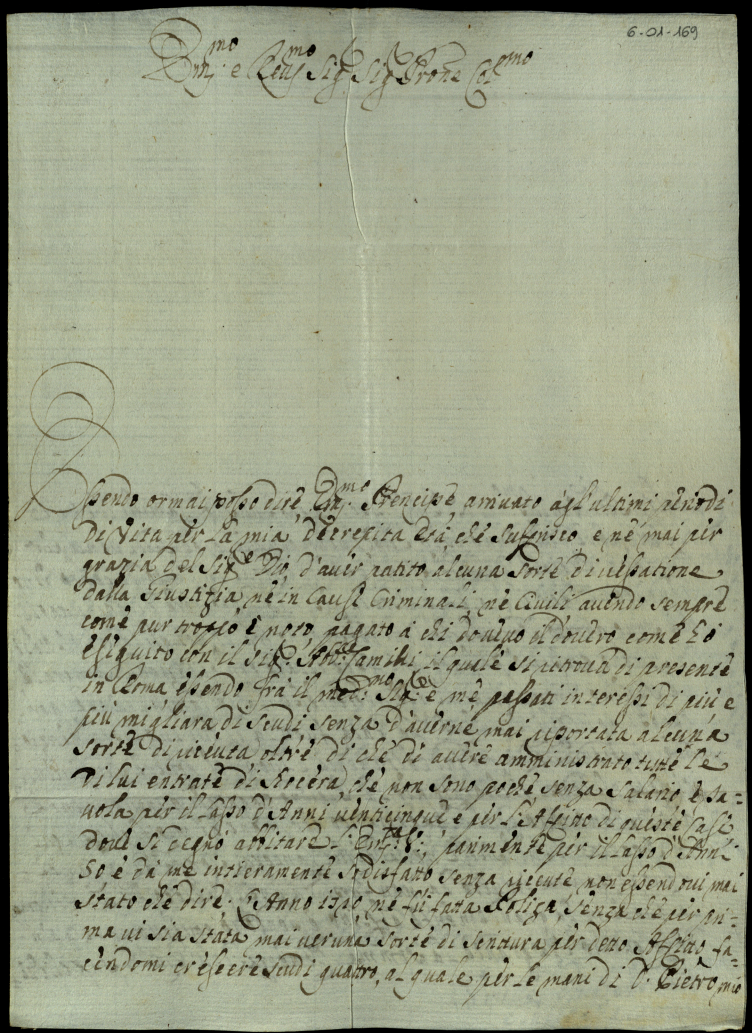 6-01-169
Em.mo e Reu.mo Sig.r Sig.r Prone Col.mo
Essendo ormai posso dire Em.mo Prencipe arriuato agl'ultimi periodi
di Vita per la mia decrepita Età che suffrisco, e nè mai per
grazia del Sig.re Dio d'auer patito alcuna sorte di uessatione
dalla Giustizia, nè in Cause Criminali, nè Ciuili auendo sempre
come pur troppo è noto pagato à chi doueuo il douero come hò
eseguito con il Sig.r Ab.te il quale si ritroua di presente
in Roma essendo frà il med.mo Sig.re e mè passati interessi di più e
più migliara di scudi senza d'auerne mai riportata alcuna
sorte di riceuta oltre di che di auere amministrato tutte le
di lui entrate di che non sono poche senza salario, e ta=
uola per il lasso d'Anni uenticinque e per l'Affitto di queste case
doue si degnò abbitare l'Em.za V., parimente per il lasso d'Anni
50 è da me intieramente sodisfatto senza riceute non essendoui mai
stato che dire. L'Anno nè fù fatta Poliza, senza che per pri=
ma ui sia stata mai ueruna sorte di scrittura per detto Affitto fa=
cendomi crescere scudi quattro, al quale per le mani di D. Pietro mio